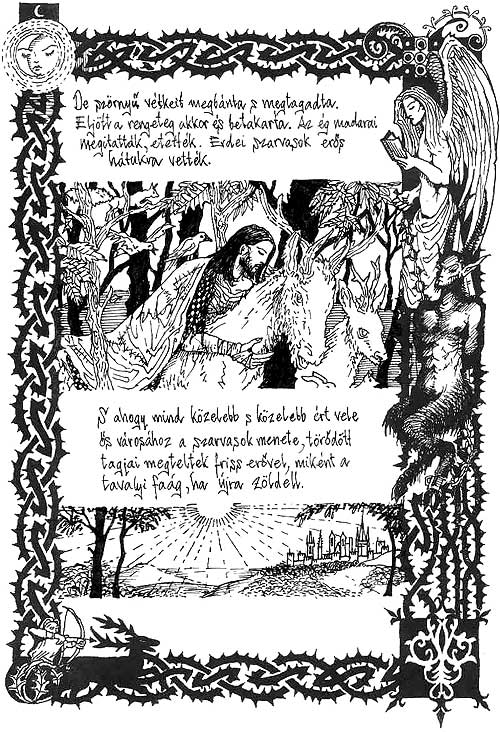 De szörnyű vétkeit megbánta s megtagadta.
Eljött a rengeteg akkor és betakarta. Az ég madarai
megitatták, etették. Erdei szarvasok erős
hátukra vették.
S ahogy mind közelebb s közelebb ért vele
ős városához a szarvasok menete, törődött
tagjai megteltek friss erővel, miként a
tavalyi faág, ha újra zöldell.